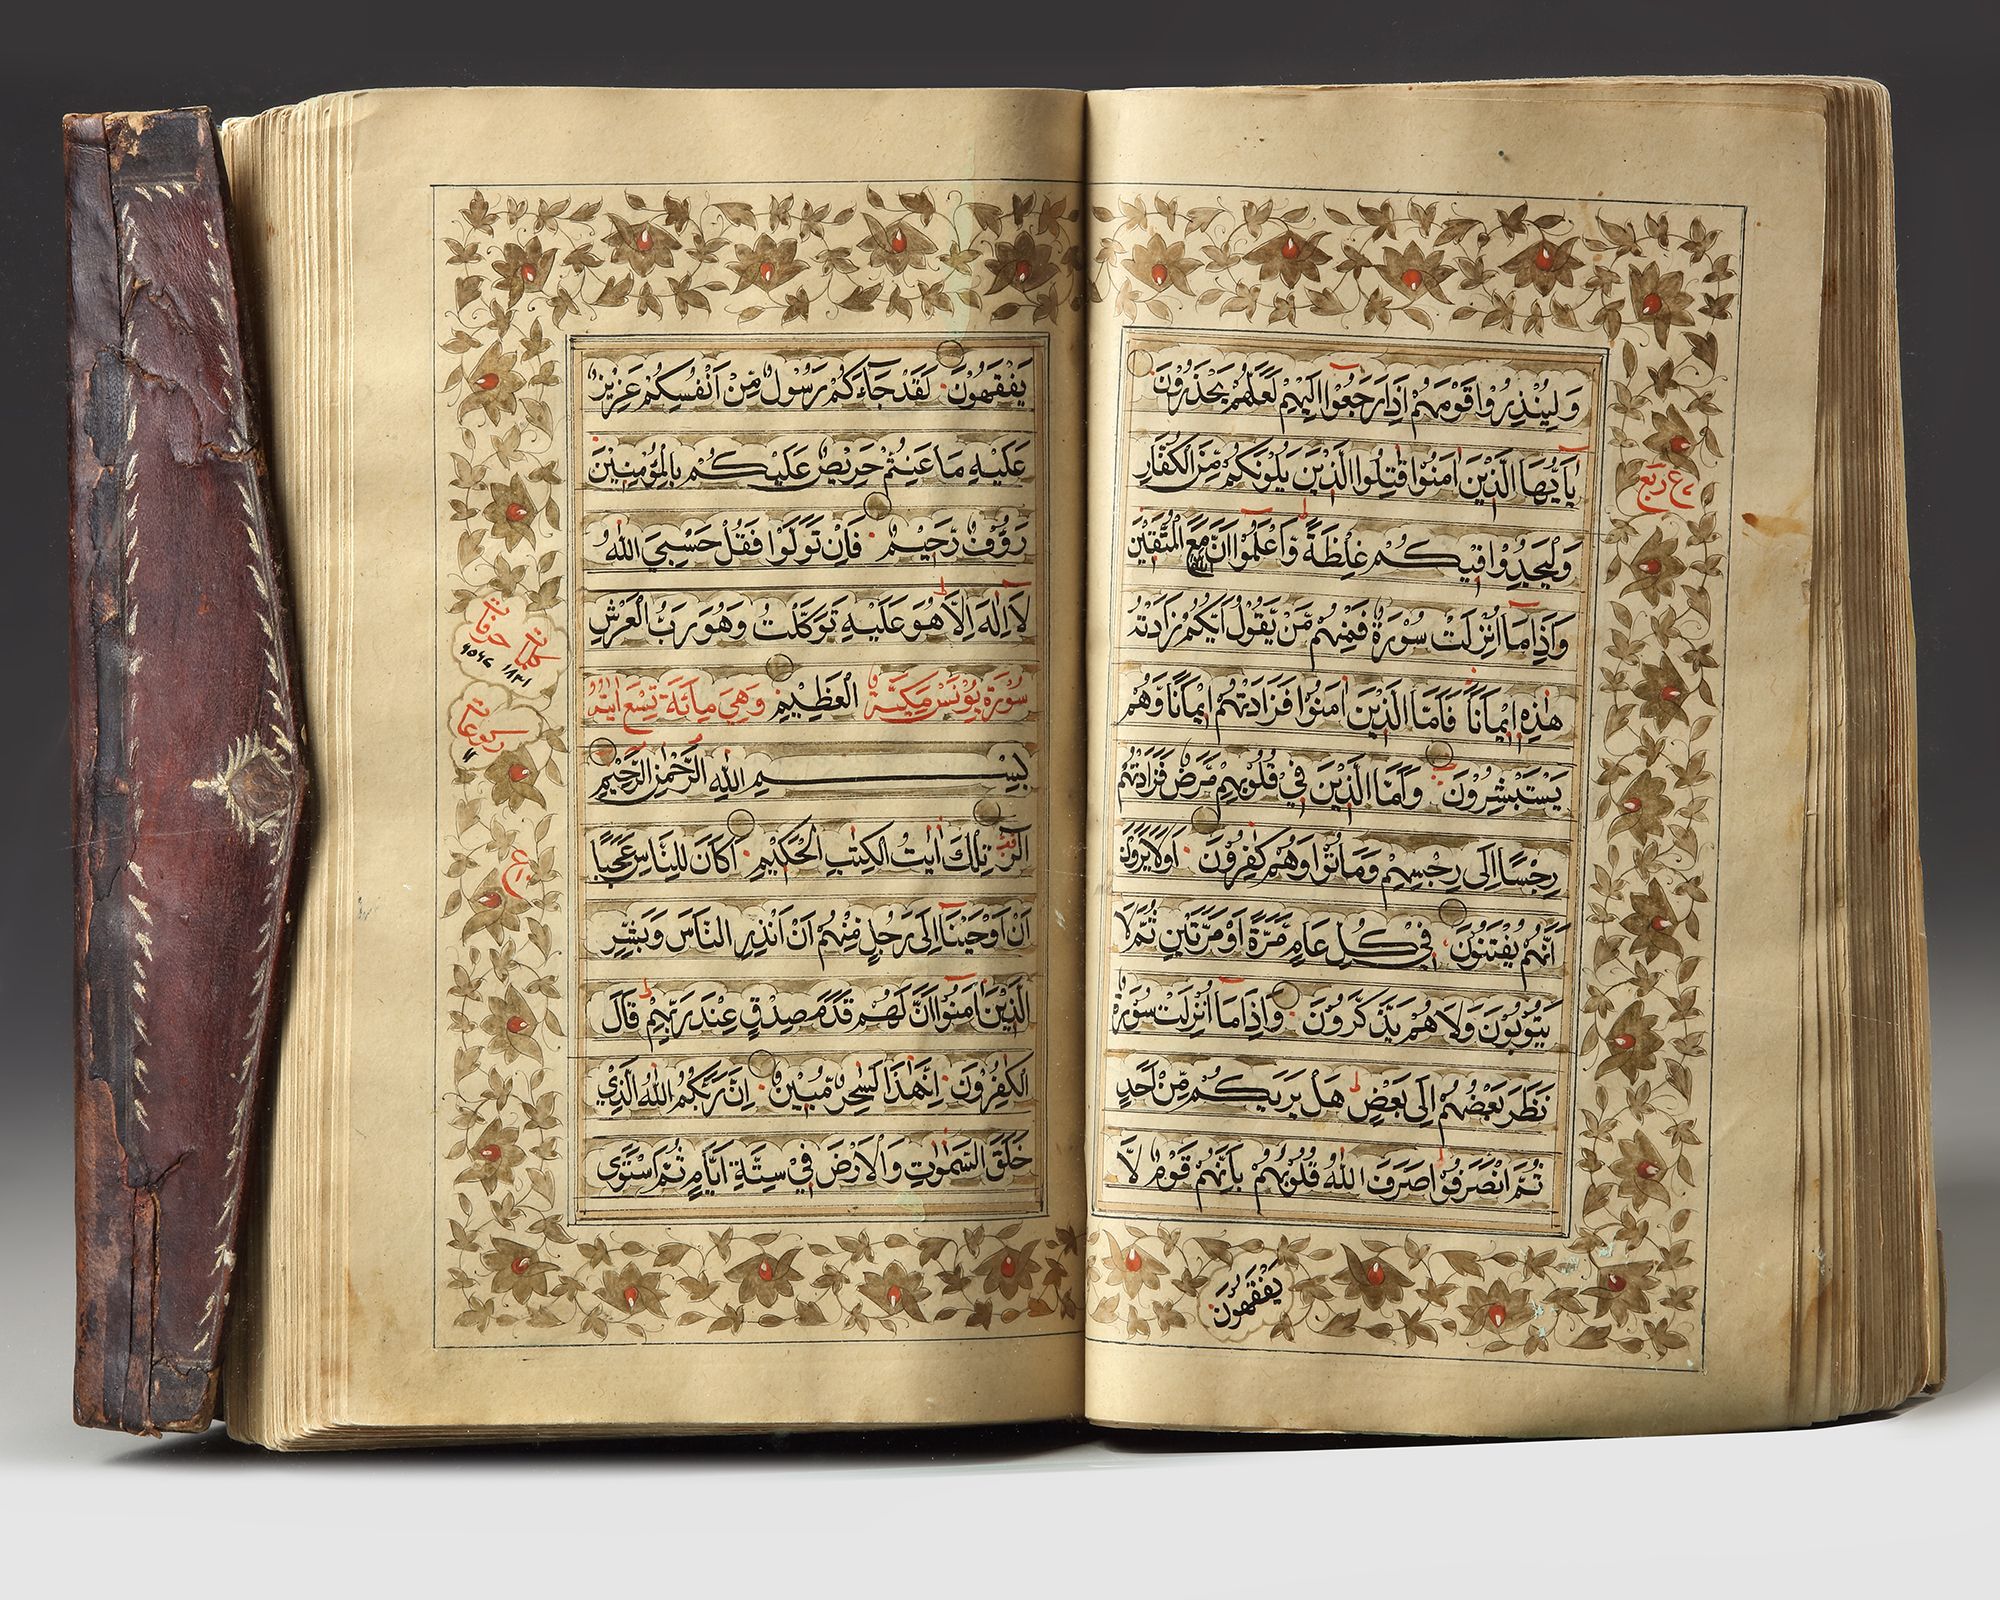 وَلِيُنْذِرُوا قَوْمَهُمْ اِذَا رَجَعُوْٓا اِلَيْهِمْ لَعَلَّهُمْ يَحْذَرُوْنَ
يٰٓاَيُّهَا الَّذِيْنَ اٰمَنُوْا قَاتِلُوا الَّذِيْنَ يَلُوْنَكُمْ مِّنَ الْكُفَّارِ
وَلْيَجِدُوْا فِيْكُمْ غِلْظَةً وَاعْلَمُوْٓا اَنَّ اللّٰهَ مَعَ الْمُتَّقِيْنَ
وَاِذَا مَآ اُنْزِلَتْ سُوْرَةٌ فَمِنْهُمْ مَّنْ يَّقُوْلُ اَيُّكُمْ زَادَتْهُ
هٰذِهٖ اِيْمَانًا فَاَمَّا الَّذِيْنَ اٰمَنُوْا فَزَادَتْهُمْ اِيْمَانًا وَّهُمْ
يَسْتَبْشِرُوْنَ وَاَمَّا الَّذِيْنَ فِيْ قُلُوْبِهِمْ مَّرَضٌ فَزَادَتْهُمْ
رِجْسًا اِلٰى رِجْسِهِمْ وَمَاتُوْا وَهُمْ كٰفِرُوْنَ اَوَلَا يَرَوْنَ
اَنَّهُمْ يُفْتَنُوْنَ فِيْ كُلِّ عَامٍ مَّرَّةً اَوْ مَرَّتَيْنِ ثُمَّ لَا
يَتُوْبُوْنَ وَلَا هُمْ يَذَّكَّرُوْنَ وَاِذَا مَآ اُنْزِلَتْ سُوْرَةٌ
نَّظَرَ بَعْضُهُمْ اِلٰى بَعْضٍ هَلْ يَرٰىكُمْ مِّنْ اَحَدٍ
ثُمَّ انْصَرَفُوْا صَرَفَ اللّٰهُ قُلُوْبَهُمْ بِاَنَّهُمْ قَوْمٌ لَّا
يَفْقَهُوْنَ
ربع
يَفْقَهُوْنَ لَقَدْ جَآءَكُمْ رَسُوْلٌ مِّنْ اَنْفُسِكُمْ عَزِيْزٌ
عَلَيْهِ مَا عَنِتُّمْ حَرِيْصٌ عَلَيْكُمْ بِالْمُؤْمِنِيْنَ
رَءُوْفٌ رَّحِيْمٌ فَاِنْ تَوَلَّوْا فَقُلْ حَسْبِيَ اللّٰهُ
لَآ اِلٰهَ اِلَّا هُوَ عَلَيْهِ تَوَكَّلْتُ وَهُوَ رَبُّ الْعَرْشِ
سُوْرَةُ يُوْنُسَ مَكِّيَّةٌ الْعَظِيْمِ وَهِيَ مِائَةٌ تِسْعُ اٰيَةً
بِسْمِ اللّٰهِ الرَّحْمٰنِ الرَّحِيْمِ
الٓرٰ تِلْكَ اٰيٰتُ الْكِتٰبِ الْحَكِيْمِ اَكَانَ لِلنَّاسِ عَجَبًا
اَنْ اَوْحَيْنَآ اِلٰى رَجُلٍ مِّنْهُمْ اَنْ اَنْذِرِ النَّاسَ وَبَشِّرِ
الَّذِيْنَ اٰمَنُوْٓا اَنَّ لَهُمْ قَدَمَ صِدْقٍ عِنْدَ رَبِّهِمْ قَالَ
الْكٰفِرُوْنَ اِنَّ هٰذَا لَسٰحِرٌ مُّبِيْنٌ اِنَّ رَبَّكُمُ اللّٰهُ الَّذِيْ
خَلَقَ السَّمٰوٰتِ وَالْاَرْضَ فِيْ سِتَّةِ اَيَّامٍ ثُمَّ اسْتَوٰى
كلمات حرفات
ركوعات
۱۱